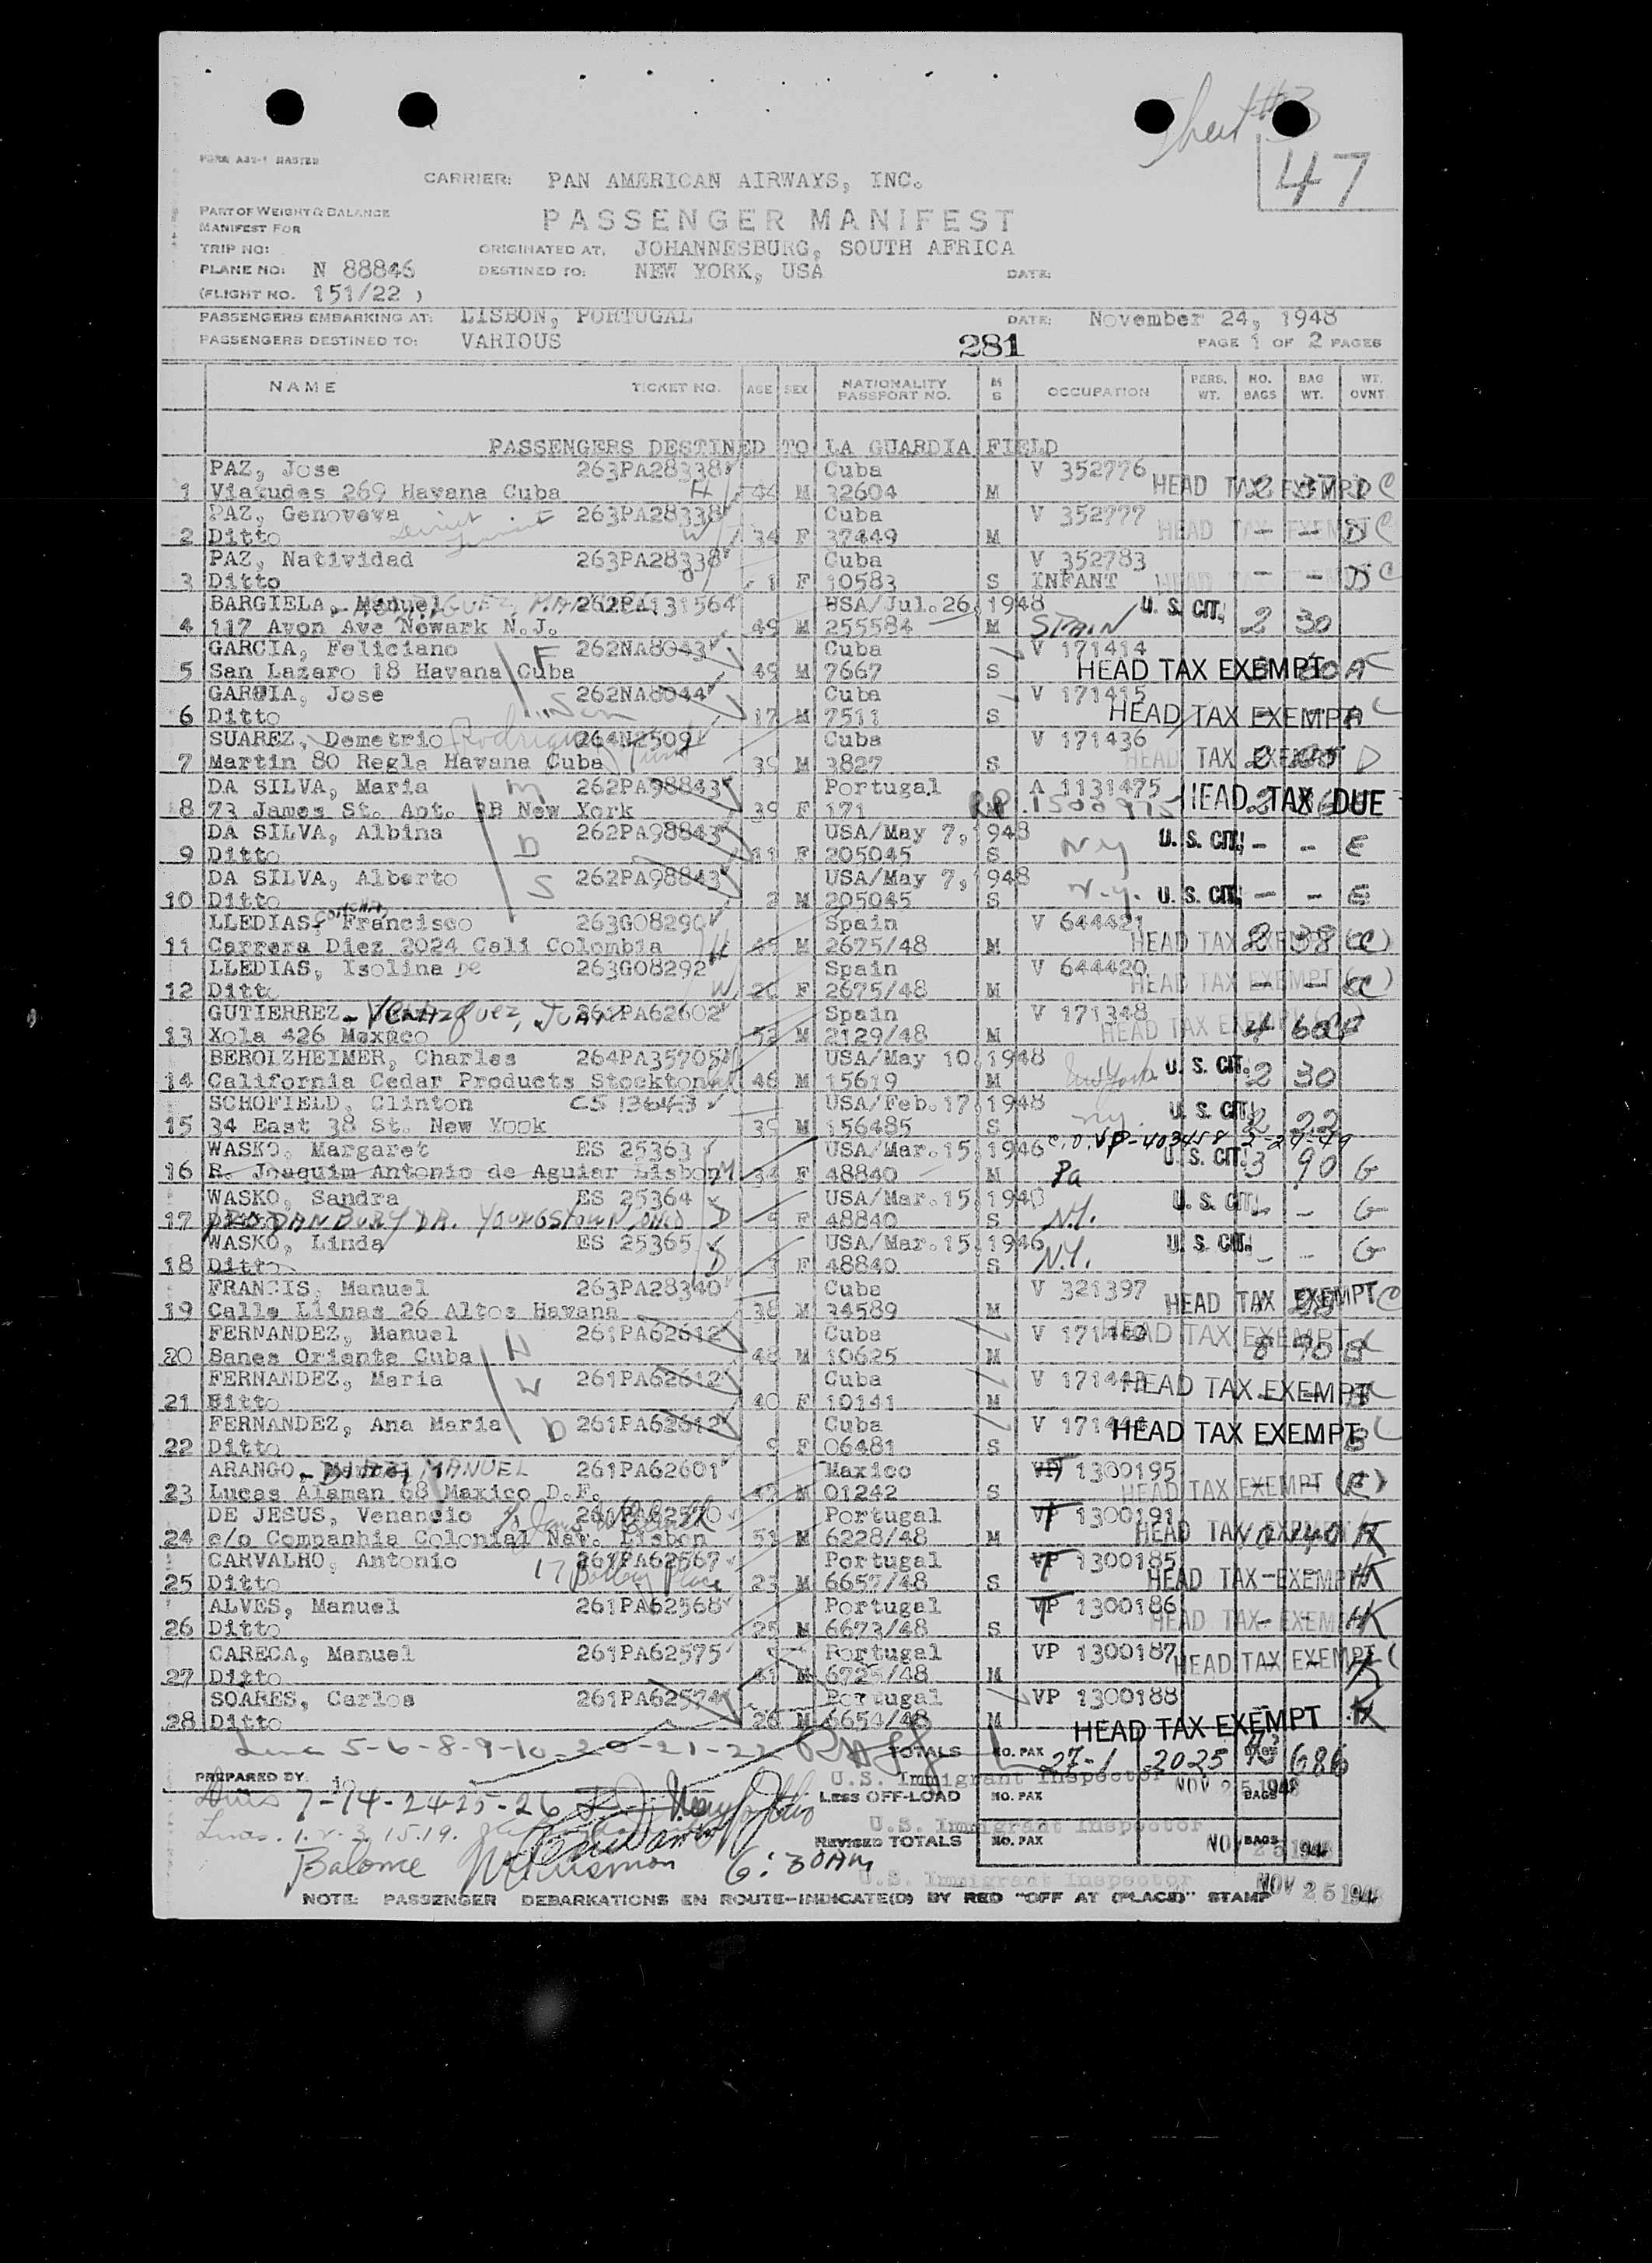 Sheet #3
47
FORM A32-1 MASTER
CARRIER: PAN AMERICAN AIRWAYS, INC.
PART OF WEIGHT & BALANCE
MANIFEST FOR
PASSENGER MANIFEST
TRIP NO: ORIGINATED AT. JOHANNESBURG, SOUTH AFRICA
PLANE NO: N 88846 DESTINED TO: NEW YORK, USA DATE:
(FLIGHT NO. 151/22 )
PASSENGERS EMBARKING AT: LISBON, PORTUGAL DATE: November 24, 1948
PASSENGERS DESTINED TO: VARIOUS 281 PAGE 1 OF 2 PAGES
NAME TICKET NO. AGE SEX NATIONALITY PASSPORT NO. M S OCCUPATION PERS. WT. NO. BAGS BAG WT. WT. OVNT.
PASSENGERS DESTINED TO LA GUARDIA FIELD
PAZ, Jose 263PA28338 Cuba V 352776
1 Viatudes 269 Havana Cuba H 44 M 32604 M HEAD TAX EXEMPT C
PAZ, Genoveva 263PA28338 Cuba V 352777
2 Ditto W 34 F 37449 M HEAD TAX EXEMPT - - D C
PAZ, Natividad 263PA28338 Cuba V 352783
3 Ditto 1 F 10583 S INFANT - - D C
BARGIELA, Manuel 262PA131564 USA/Jul.26,1948 U. S. CIT.
4 117 Avon Ave Newark N.J. 49 M 255584 M SPAIN 2 30
GARCIA, Feliciano F 262NA8043 Cuba V 171414
5 San Lazaro 18 Havana Cuba 49 M 7667 S HEAD TAX EXEMPT A C
GARCIA, Jose 262NA8044 Cuba V 171415
6 Ditto Son 17 M 7511 S HEAD TAX EXEMPT A C
SUAREZ, Demetrio Rodriguez 264N2509 Cuba V 171436
7 Martin 80 Regla Havana Cuba 39 M 3827 S HEAD TAX EXEMPT D
DA SILVA, Maria M 262PA98843 Portugal A 1131475
8 73 James St. Apt. 3B New York 39 F 171 RP 1500975 HEAD TAX DUE
DA SILVA, Albina 262PA98843 USA/May 7,1948 U. S. CIT.
9 Ditto D 11 F 205045 S NY - - E
DA SILVA, Alberto 262PA98843 USA/May 7,1948
10 Ditto S 2 M 205045 S N.Y. U. S. CIT. - - E
LLEDIAS, Francisco 263G08290 Spain V 644421
11 Carrera Diez 2024 Cali Colombia H 45 M 2675/48 M HEAD TAX EXEMPT 2 38 (C)
LLEDIAS, Isolina De 263G08292 Spain V 644420
12 Ditto W 20 F 2675/48 M HEAD TAX EXEMPT - - (C)
GUTIERREZ - Velazquez, Juan 261PA62602 Spain V 171348
13 Xola 426 Mexico 52 M 2129/48 M HEAD TAX EXEMPT 4 60
BEROLZHEIMER, Charles 264PA35705 USA/May 10,1948
14 California Cedar Products Stockton 46 M 15619 M New York U. S. CIT. 2 30
SCHOFIELD, Clinton CS 13643 USA/Feb.17,1948
15 34 East 38 St. New Yook 39 M 156485 S NY. U. S. CIT. 2 22
WASKO, Margaret ES 25363 USA/Mar.15,1946 VP-403458 2-24-49
16 R. Joaquim Antonio de Aguiar Lisbon M 34 F 48840 M Pa U. S. CIT. 3 90 G
WASKO, Sandra ES 25364 USA/Mar.15,1946
17 DANBURY DR. YOUNGSTOWN, OHIO D 9 F 48840 S N.Y. U. S. CIT. - - G
WASKO, Linda ES 25365 USA/Mar.15,1946
18 Ditto D F 48840 S N.Y. U. S. CIT. - - G
FRANCIS, Manuel 263PA28340 Cuba V 321397
19 Calle Llinas 26 Altos Havana 38 M 34589 M HEAD TAX EXEMPT C
FERNANDEZ, Manuel 261PA62612 Cuba V HEAD TAX EXEMPT
20 Banes Oriente Cuba H 48 M 10625 M 8 90 B
FERNANDEZ, Maria 261PA62612 Cuba V HEAD TAX EXEMPT
21 Ditto W 40 F 10141 M
FERNANDEZ, Ana Maria 261PA62612 Cuba V HEAD TAX EXEMPT C
22 Ditto D 9 F 06481 S
ARANGO - MANUEL 261PA62601 Mexico 1300195
23 Lucas Alaman 68 Mexico D.F. 47 M 01242 S HEAD TAX EXEMPT
DE JESUS, Venancio 261PA62570 Portugal 1300191
24 c/o Companhia Colonial Nav. Lisbon 51 M 6228/48 M HEAD TAX EXEMPT
CARVALHO, Antonio 261PA62567 Portugal VP 1300185
25 Ditto 17 Battery Place 23 M 6657/48 S HEAD TAX EXEMPT
ALVES, Manuel 261PA62568 Portugal 1300186
26 Ditto 25 M 6673/48 S HEAD TAX EXEMPT
CARECA, Manuel 261PA62575 Portugal VP 1300187
27 Ditto 41 M 6725/48 M HEAD TAX EXEMPT
SOARES, Carlos 261PA62574 Portugal VP 1300188
28 Ditto 26 M 6654/48 M HEAD TAX EXEMPT
5-6-8-9-10-20-21-22 TOTALS NO. PAX 27-1 2025 BAGS 686
PREPARED BY U.S. Immigrant Inspector NOV 25 1948
7-14-24-25-26 LESS OFF-LOAD NO. PAX BAGS
Lines. 1. 2. 3. 15. 19. U.S. Immigrant Inspector
REVISED TOTALS NO. PAX BAGS NOV 25 1948
Balance 6:30 AM
U.S. Immigrant Inspector NOV 25 1948
NOTE: PASSENGER DEBARKATIONS EN ROUTE-INDICATE(D) BY RED "OFF AT (PLACE)" STAMP